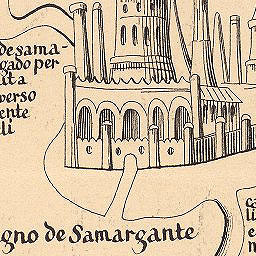 de sama-
gado per
ata
verso
ente
li
gno de Samargante
ca
li
e
n